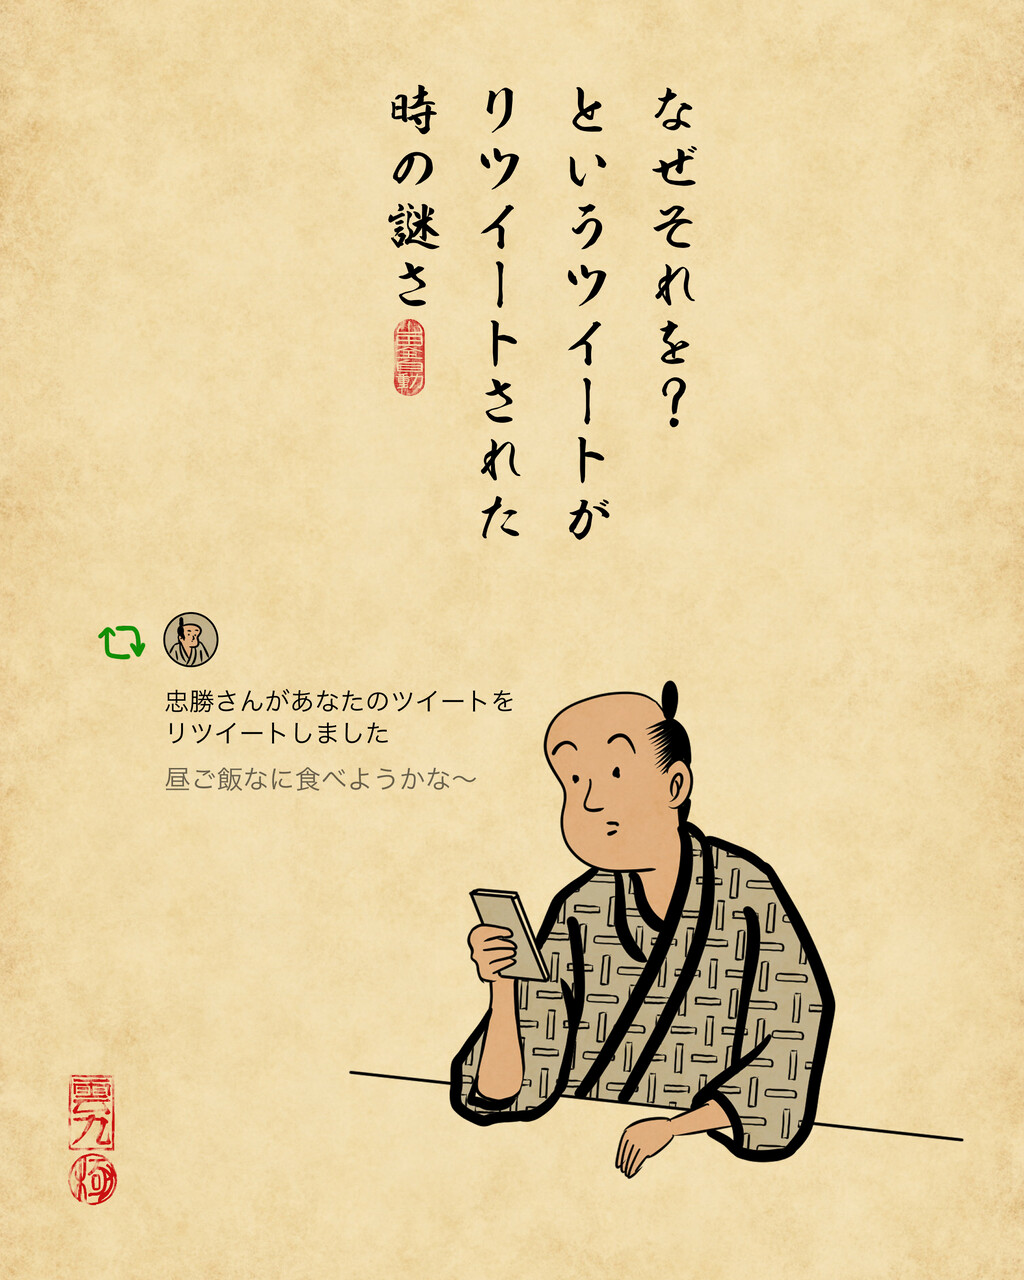 なぜそれを?
というツイートが
リツイートされた
時の謎さ
忠勝さんがあなたのツイートを
リツイートしました
昼ご飯なに食べようかな〜